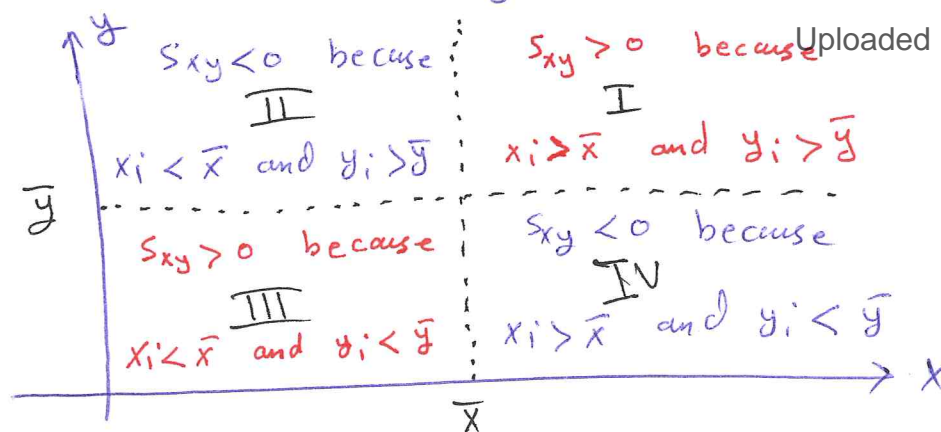 y
Uploaded
S_xy < 0 because
II
x_i < x̄ and y_i > ȳ
S_xy > 0 because
I
x_i > x̄ and y_i > ȳ
ȳ
S_xy > 0 because
III
x_i < x̄ and y_i < ȳ
S_xy < 0 because
IV
x_i > x̄ and y_i < ȳ
x
x̄